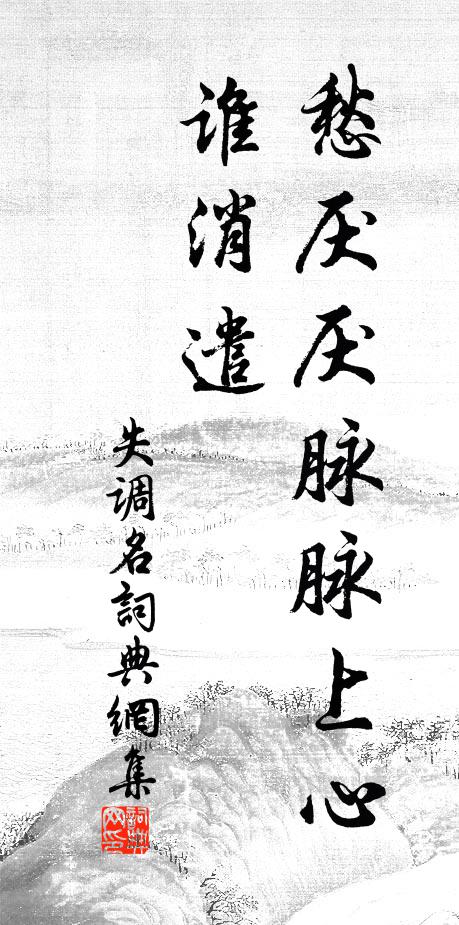 愁厌厌脉脉上心
谁消遣
失调名詞典網集